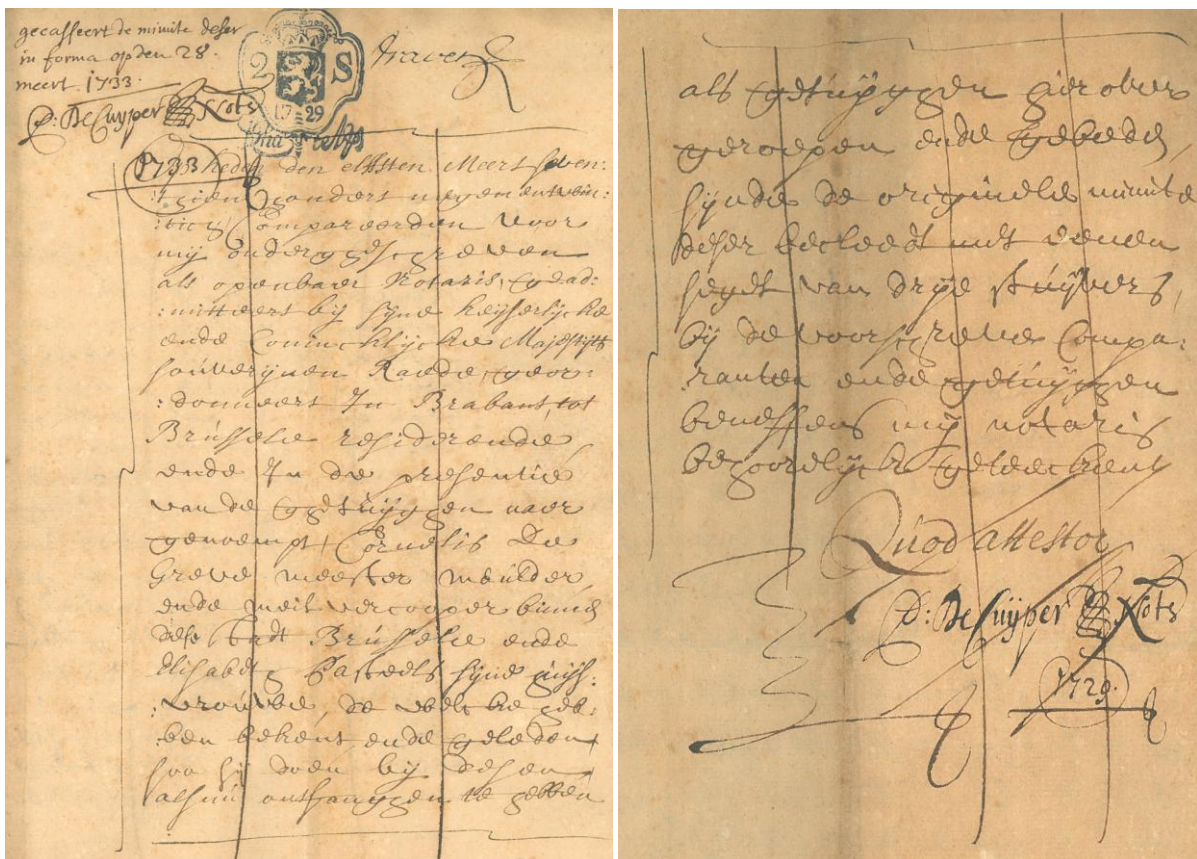 gecasseert de minute deser
in forma op den 28
meert 1733
P: De Cuyper Nots
2 S
17 29
1733
heden den elfsten Meert seven:
:thien hondert negen entwin:
:tich Compareerden voor
mij onderggeschreven
als openbaer Notaris, ggead:
:mitteert bij syne keyserlycke
ende Coninclycke Majestyts
souverynen Raede, geor:
:donneert In Brabant, tot
Brússele residerende,
ende In de presentie
van de ggetúÿggen naer
genoempt, Cornelis De
Greve meester meúlder
ende vercooper binnen
dese stadt Brússele ende
Elisabeth Pasteels syne húÿs:
:vroúwe, de welcke heb:
:ben bekent, ende geleden
soo sij doen bij desen
ontfanggen te hebben
als ggetúÿggen hier over
geroepen ende gebeden,
synde de originele minute
deser becleedt met eenen
segel van drye stúÿvers,
bij de voorschreve Compa:
:ranten ende getúÿggen
beneffens mij notaris
behoorelyck geteeckent
Quod attestor
P: De Cuyper Nots
1729.